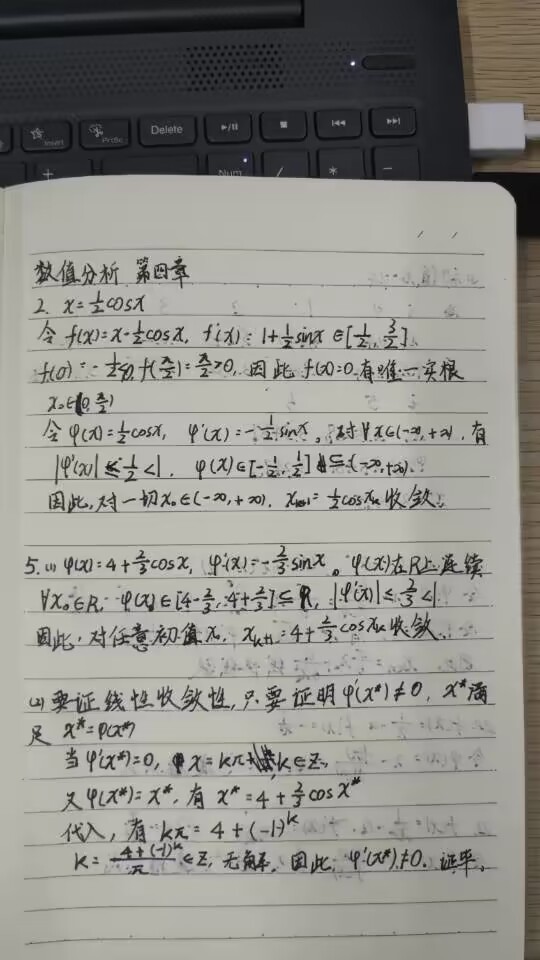 Insert
PrtSc
Delete
Num
+
/
*
-
数值分析 第四章
2. x=½cosx
令 f(x)=x-½cosx, f'(x)=1+½sinx∈[½, 3/2].
f(0)=-½<0, f(π/2)=π/2>0, 因此 f(x)=0 有唯一实根
x₀∈(0, π/2)
令 φ(x)=½cosx, φ'(x)=-½sinx。对∀x∈(-∞,+∞), 有
|φ'(x)|≤½<1, φ(x)∈[-½, ½]⊆(-∞,+∞).
因此, 对一切x₀∈(-∞,+∞), xₖ₊₁=½cosxₖ收敛。
5. (1) φ(x)=4+⅔cosx, φ'(x)=-⅔sinx。φ(x)在R上连续
∀x₀∈R, φ(x)∈[4-⅔, 4+⅔]⊆R, |φ'(x)|≤⅔<1
因此, 对任意初值x₀, xₖ₊₁=4+⅔cosxₖ收敛。
(2) 要证线性收敛性, 只要证明φ'(x*)≠0, x*满
足 x*=φ(x*)
当φ'(x*)=0, x=kπ, k∈Z,
又φ(x*)=x*, 有 x*=4+⅔cosx*
代入, 有 kπ=4+(-1)ᵏ
k=4+(-1)ᵏ/π∈Z, 无解. 因此, φ'(x*)≠0. 证毕。